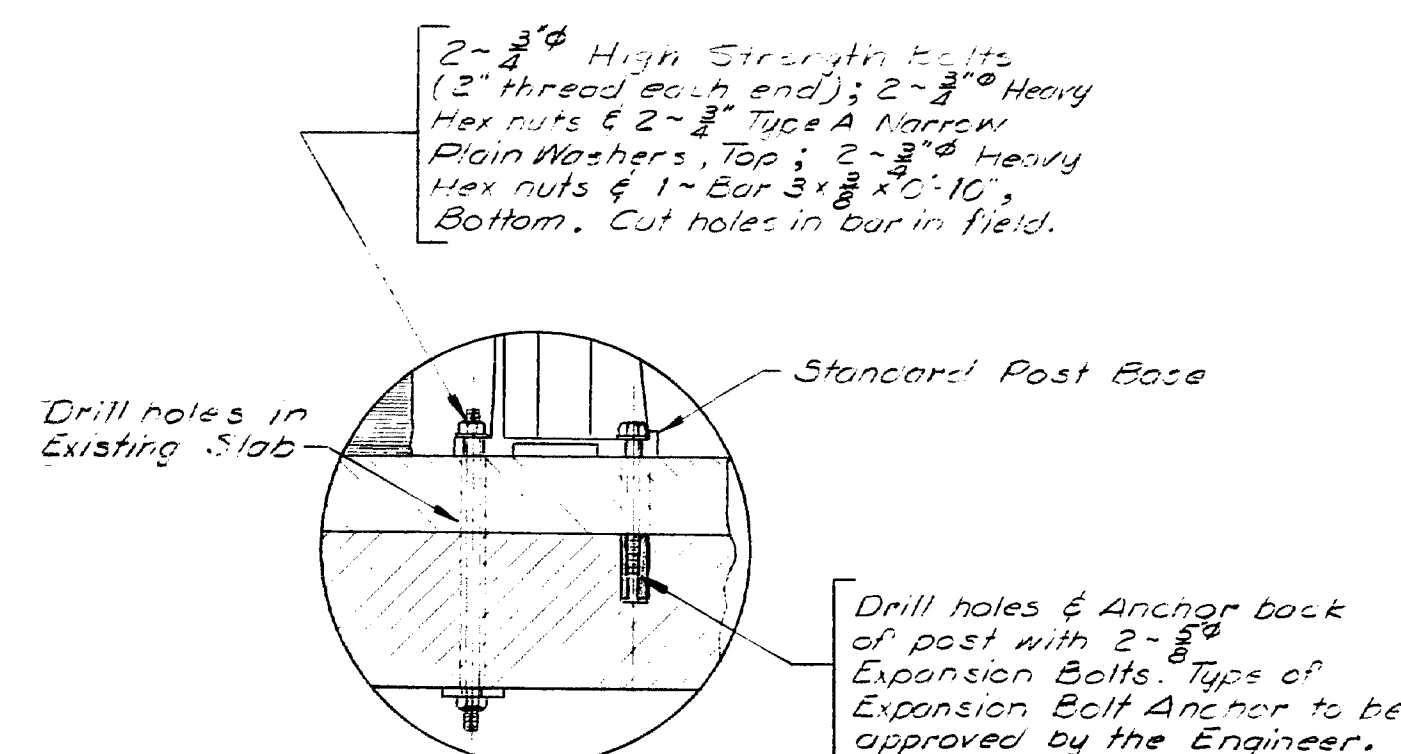 2~ 3/4"ϕ High Strength Bolts
(2" thread each end); 2~ 3/4"ϕ Heavy
Hex nuts & 2~ 3/4" Type A Narrow
Plain Washers, Top; 2~ 3/4"ϕ Heavy
Hex nuts & 1~ Bar 3 x 3/8 x 0'-10",
Bottom. Cut holes in bar in field.
Standard Post Base
Drill holes in
Existing Slab
Drill holes & Anchor back
of post with 2~ 5/8"ϕ
Expansion Bolts. Type of
Expansion Bolt Anchor to be
approved by the Engineer.